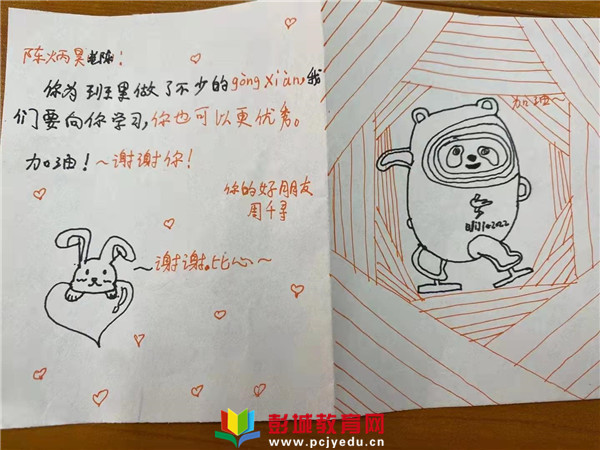 陈炳昊电脑：
你为班里做了不少的gòng xiàn,我
们要向你学习,你也可以更优秀。
加油！～谢谢你！
你的好朋友
周千寻
～谢谢。比心～
加油～
彭城教育网
www.pcjyedu.cn